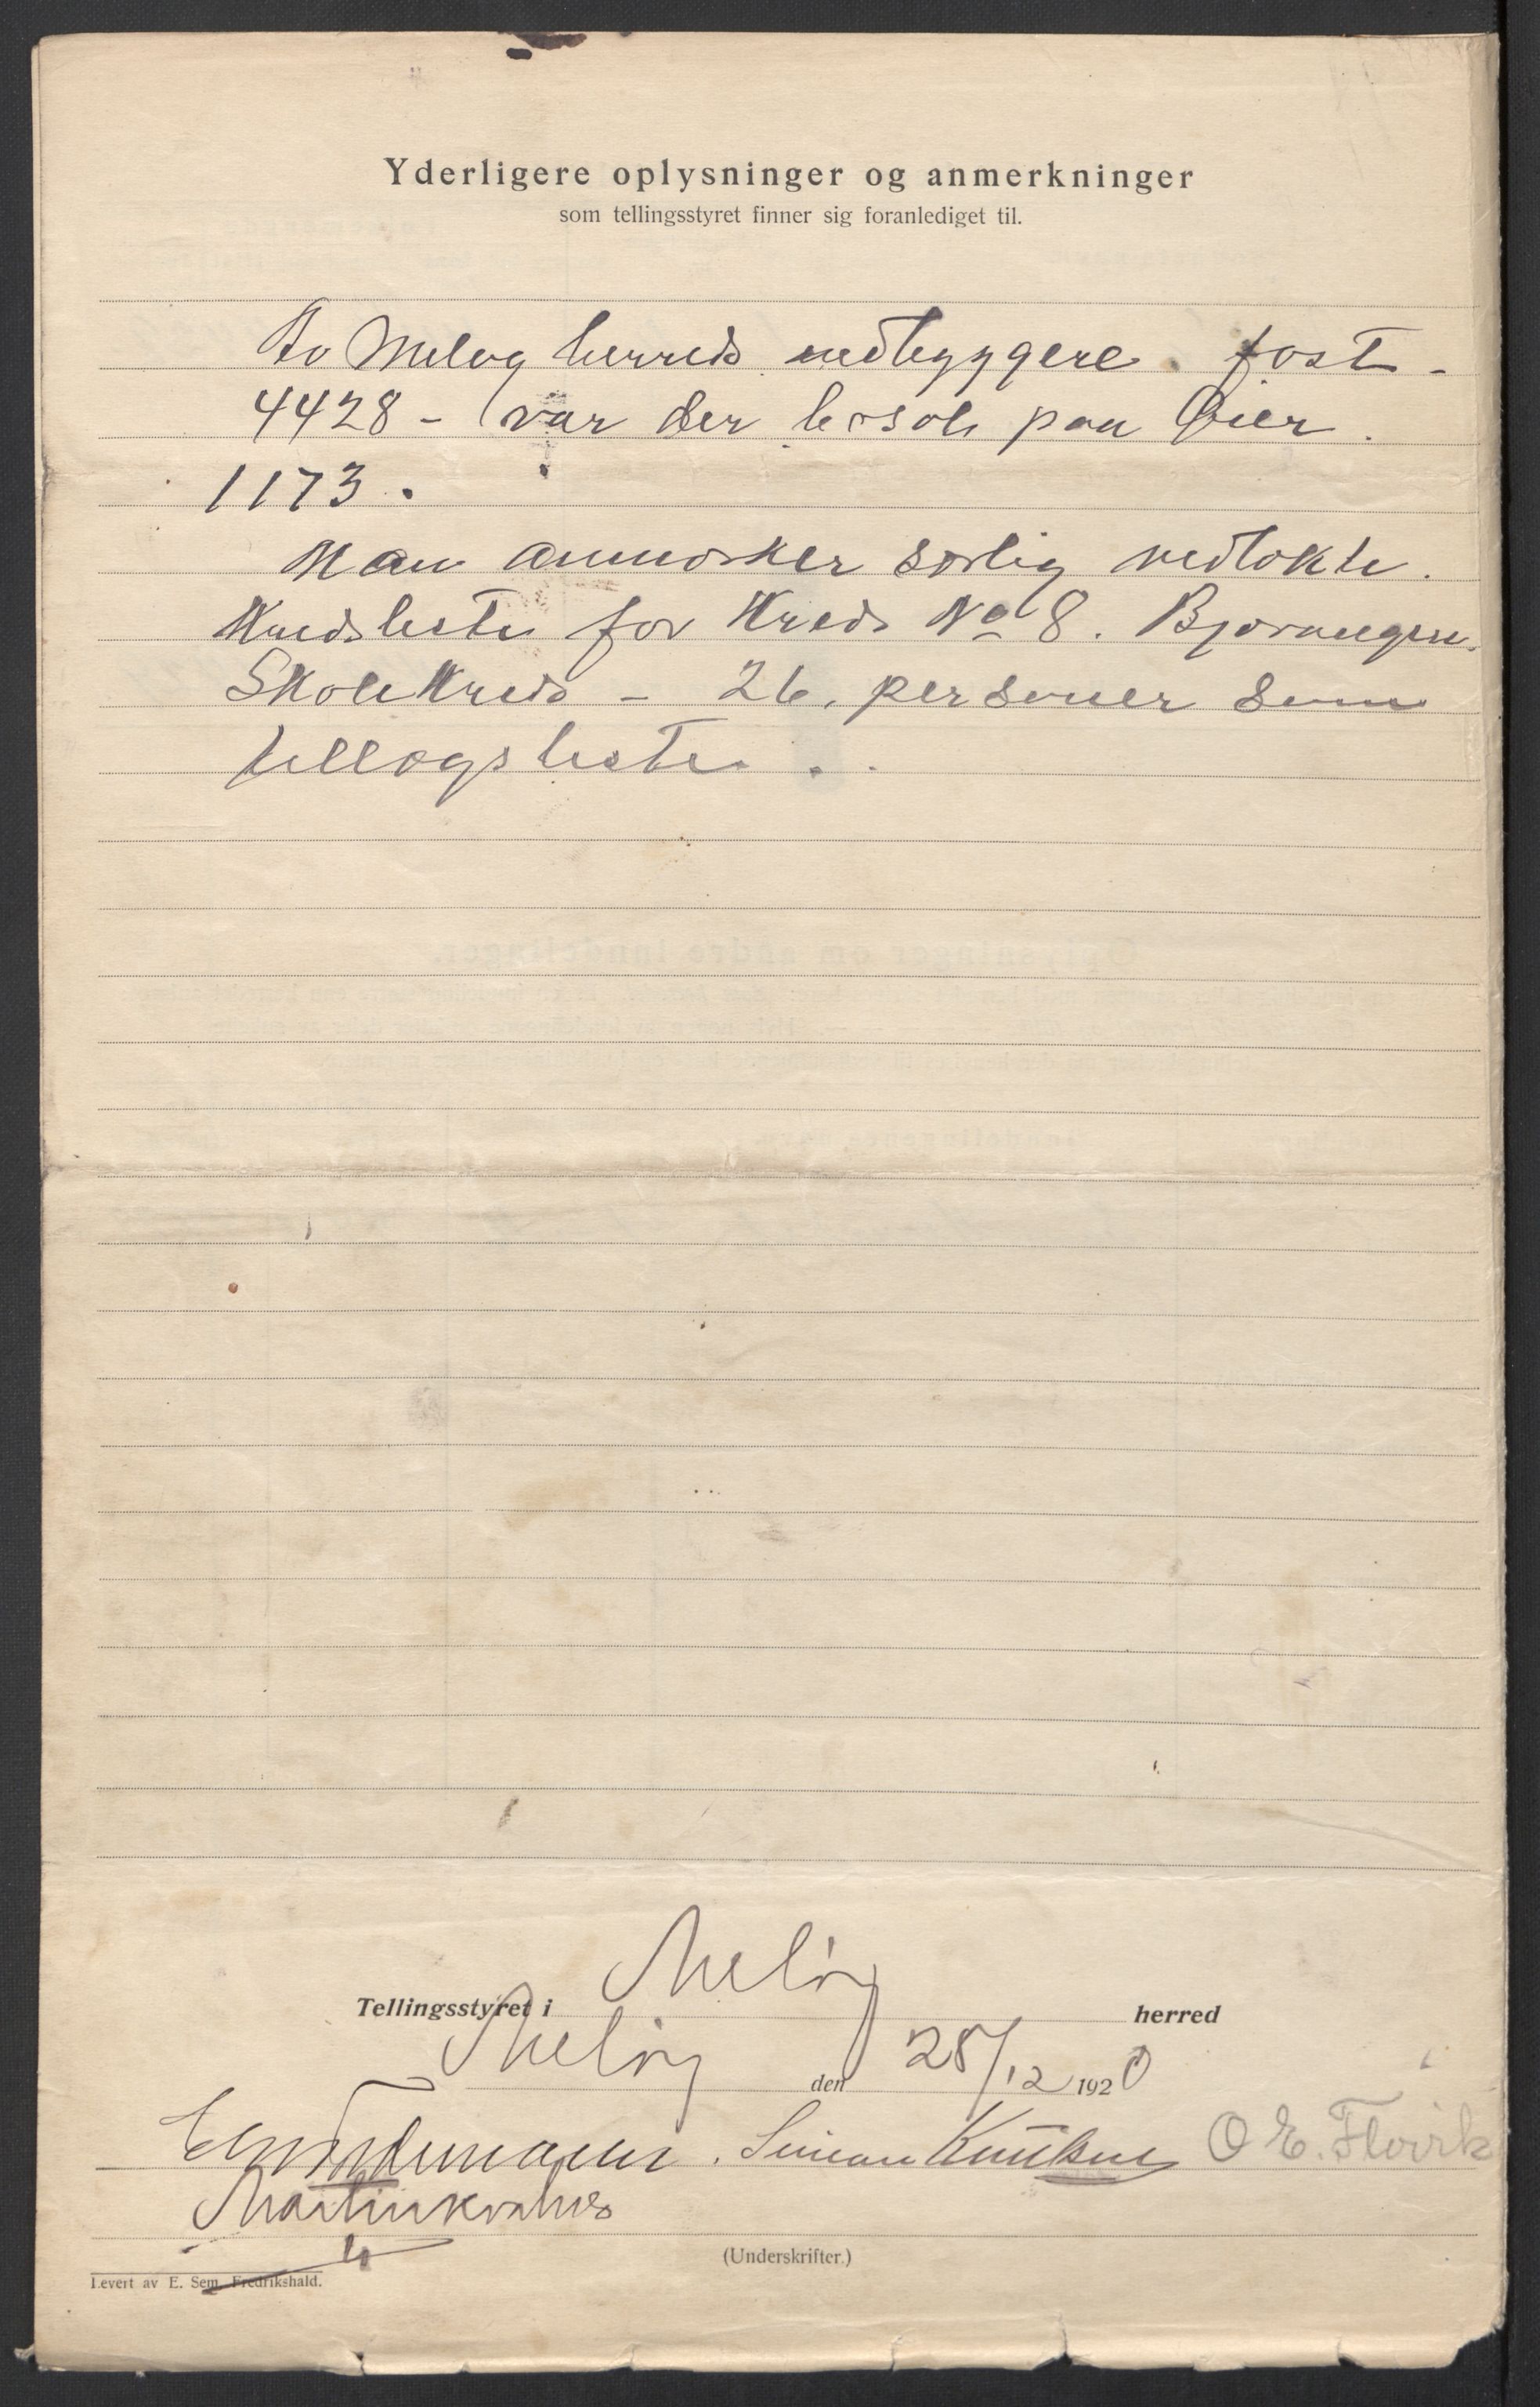 Yderligere oplysninger og anmerkninger
som tellingsstyret finner sig foranlediget til.
Av Meløy herreds indbyggere fast -
4428 - var der bosat paa Øier
1173.
Man anmerker særlig vedlakte
Kredsliste for Kreds No 8. Bjærangen
Skolekreds - 26. personer som
tillægsliste.
Meløy
Tellingsstyret i herred
Meløy den 28/12 1920
Simon Knutsen O E. Flovik
Martin
(Underskrifter.)
Levert av E. Sem, Fredrikshald.